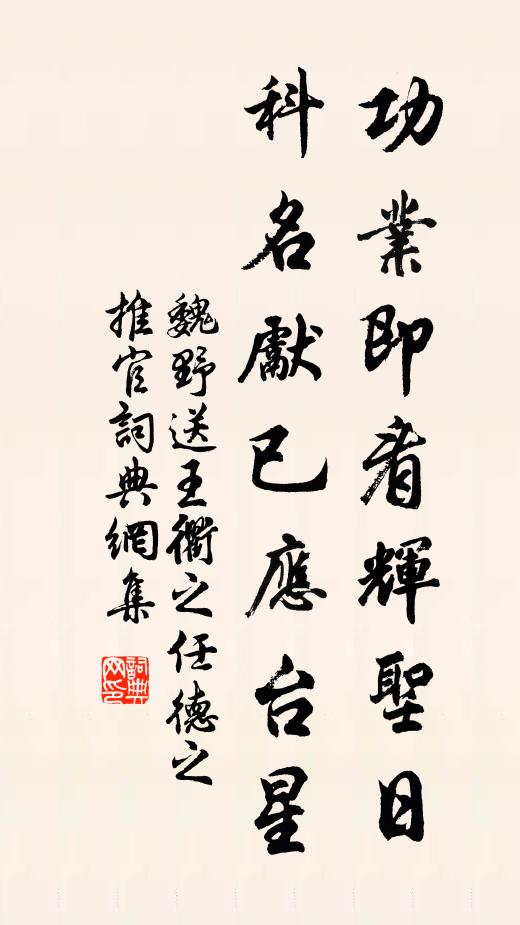 功業即看輝聖日
科名獻已應台星
魏野送王衢之任德之
推官詞典網集
詞典网印